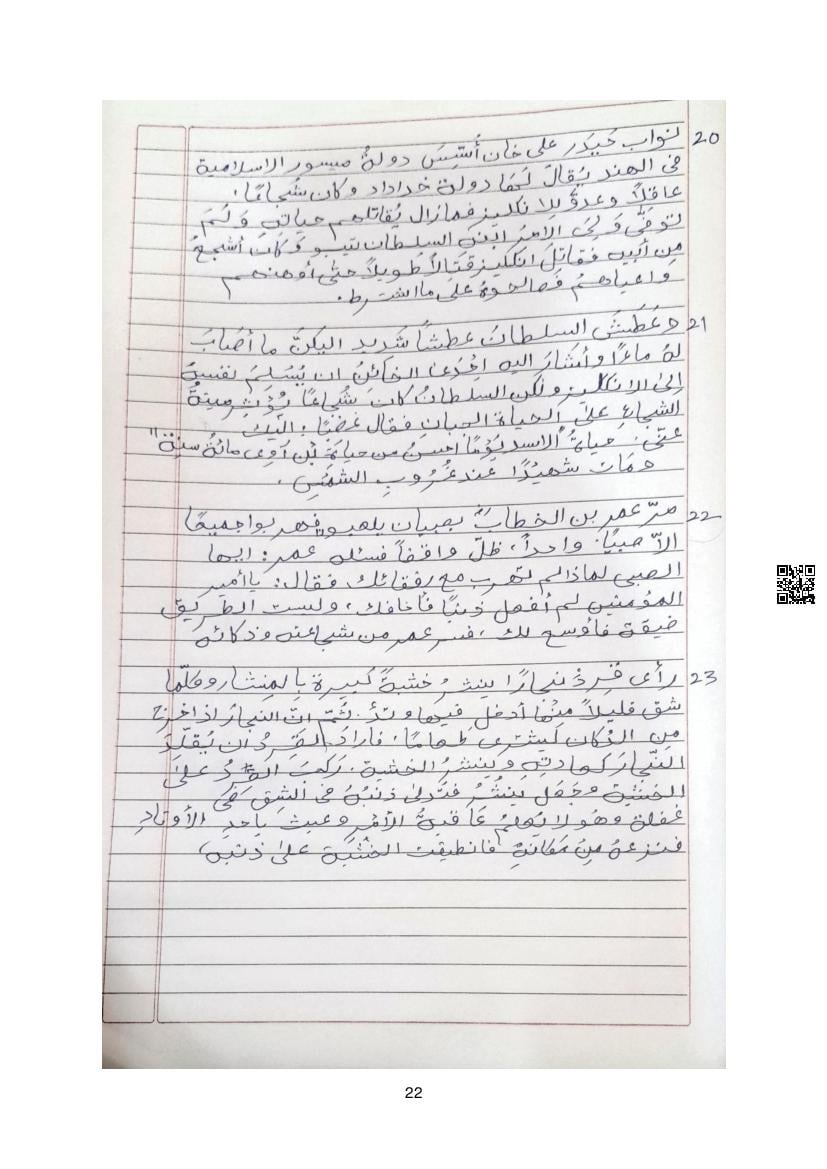 20 لنواب حَيدَر علی خان أُسّسَ دولةُ میسور الاسلامیة
فی الهند یُقالَ لَھَا دولة خداداد و کان شُجاعًا،
عاقلاً وعدوٌّ للانکلیز فمازال یُقاتلهم حیاتہِ وَلَمّ
تُوفّی وَلِیَ الامرُ ابنہُ السلطان تیپو وَکَانَ أشجعُ
مِن أبیہِ فقاتلَ انکلیز قتَالاً طویلاً حتّٰی أوهنهم
واعیاهمُ فَصالحوهُ علی ما اشترط.
21 وعَطِشَ السلطانُ عطشًا شدید الیکنَّ ما أصَابَ
لهُ ماءًا وأشَارَ الیه احَدُنا الخائنُ ان یُسَلِمَ نفسهُ
إلی الانکلیز ولکن السلطانُ کانَ شُجاعًا یُؤثر میتةُ
الشجاعِ علیَ الحیاةِ الجبانِ فقال غضبًا: إلَیْکَ
عنّی: حیاةُ الاسد یَوْمًا احسنُ من حیاةِ بْنِ آوی مائةُ سنةٍ"
ومَات شهیدًا عند غُرُوبِ الشمْسِ.
22 مرّ عمر بن الخطابؓ بصبیان یلعبون فهربوا جمیعًا
الاّ صبیًا واحداً، ظلّ واقفاً فسئله عمر: ایها
الصبی لماذا لم تهرب مع رفقائك، فقال: یا أمیر
المؤمنین لم أفعل ذنبًا فأخافك، ولیست الطریق
ضیقة فأوسع لك، فسر عمر من شجاعته وذکائه
23 رأی قِردٌ نجارًا ینشرُ خشبةً کبیرةً بِالمِنشار وکلّما
شق قلیلاً مِنْها أدخل فیها وتدً. ثُمّ انّ النجارَ إذ اخرج
مِن الدُکان لیشتری طعامًا، فارادَ القردُ ان یُقلّدَ
النّجارَ کعادتِہِ وینشرُ الخشبة. رکبَ القردُ علیٰ
الخشبة وجَعَل ینشُرُ فتدلیٰ ذنبُهُ فی الشِقِ فی
غفلة وهُو لا یعلمُ عَاقبةُ الأمْرِ وعبث بأحدِ الأوتادِ
فنزعهُ مِنْ مَکانَهِ فانطبقت الخشبةُ علیٰ ذنبِهِ،
22